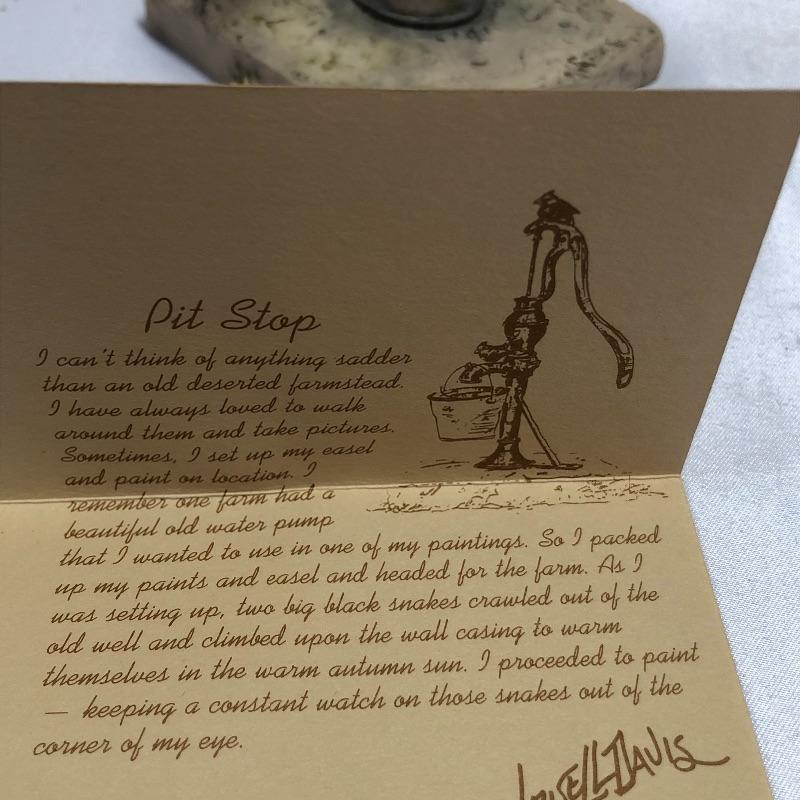 Pit Stop
I can't think of anything sadder
than an old deserted farmstead.
I have always loved to walk
around them and take pictures.
Sometimes, I set up my easel
and paint on location. I
remember one farm had a
beautiful old water pump
that I wanted to use in one of my paintings. So I packed
up my paints and easel and headed for the farm. As I
was setting up, two big black snakes crawled out of the
old well and climbed upon the wall casing to warm
themselves in the warm autumn sun. I proceeded to paint
— keeping a constant watch on those snakes out of the
corner of my eye.
Davis